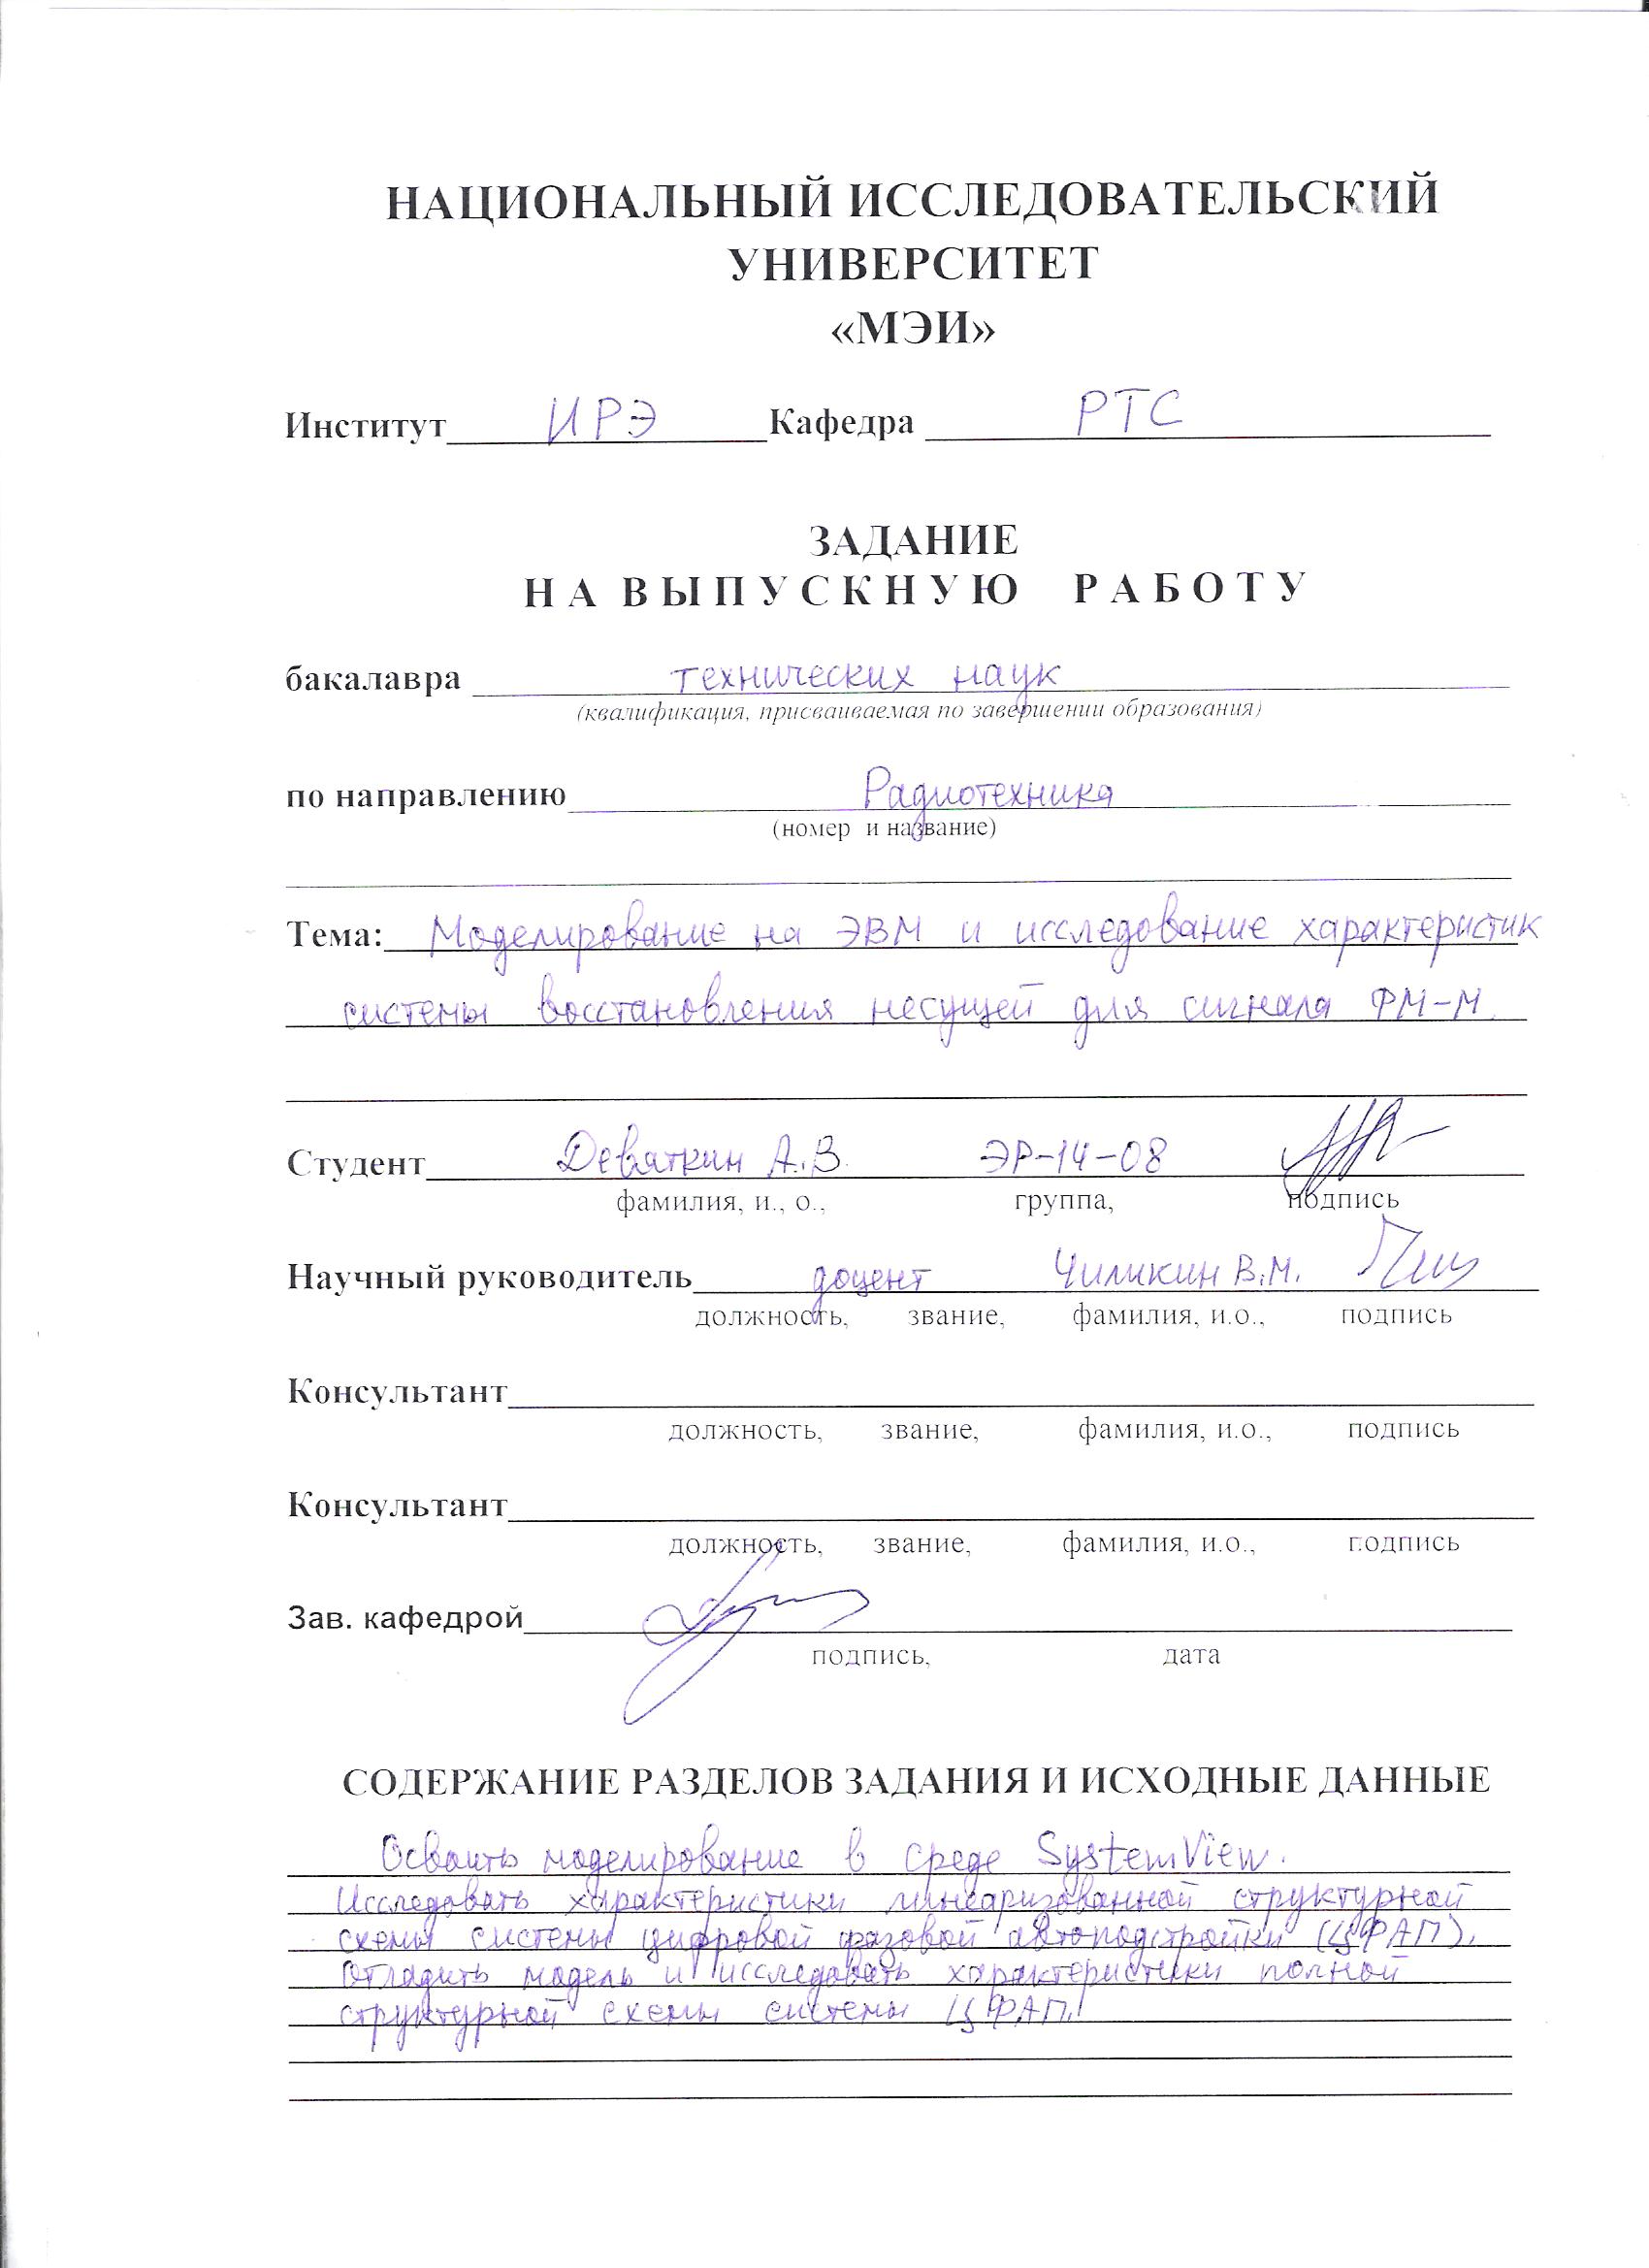 НАЦИОНАЛЬНЫЙ ИССЛЕДОВАТЕЛЬСКИЙ
УНИВЕРСИТЕТ
«МЭИ»
Институт ИРЭ Кафедра РТС
ЗАДАНИЕ
НА ВЫПУСКНУЮ РАБОТУ
бакалавра технических наук
(квалификация, присваиваемая по завершении образования)
по направлению Радиотехника
(номер и название)
Тема: Моделирование на ЭВМ и исследование характеристик
системы восстановления несущей для сигнала ФМ-М.
Студент Девяткин А.В. ЭР-14-08
фамилия, и., о., группа, подпись
Научный руководитель доцент Чиликин В.М.
должность, звание, фамилия, и.о., подпись
Консультант
должность, звание, фамилия, и.о., подпись
Консультант
должность, звание, фамилия, и.о., подпись
Зав. кафедрой
подпись, дата
СОДЕРЖАНИЕ РАЗДЕЛОВ ЗАДАНИЯ И ИСХОДНЫЕ ДАННЫЕ
Освоить моделирование в среде SystemView.
Исследовать характеристики линеаризованной структурной
схемы системы цифровой фазовой автоподстройки (ЦФАП).
Отладить модель и исследовать характеристики полной
структурной схемы системы ЦФАП.